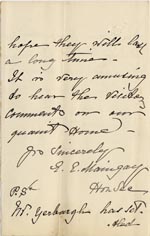 hope they will last
a long time.
It is very amusing
to hear the
comments on our
quaint home —
Yrs Sincerely
E. E. Maingay
Hon Sec
P.S.
Mr. Yerburgh has set.